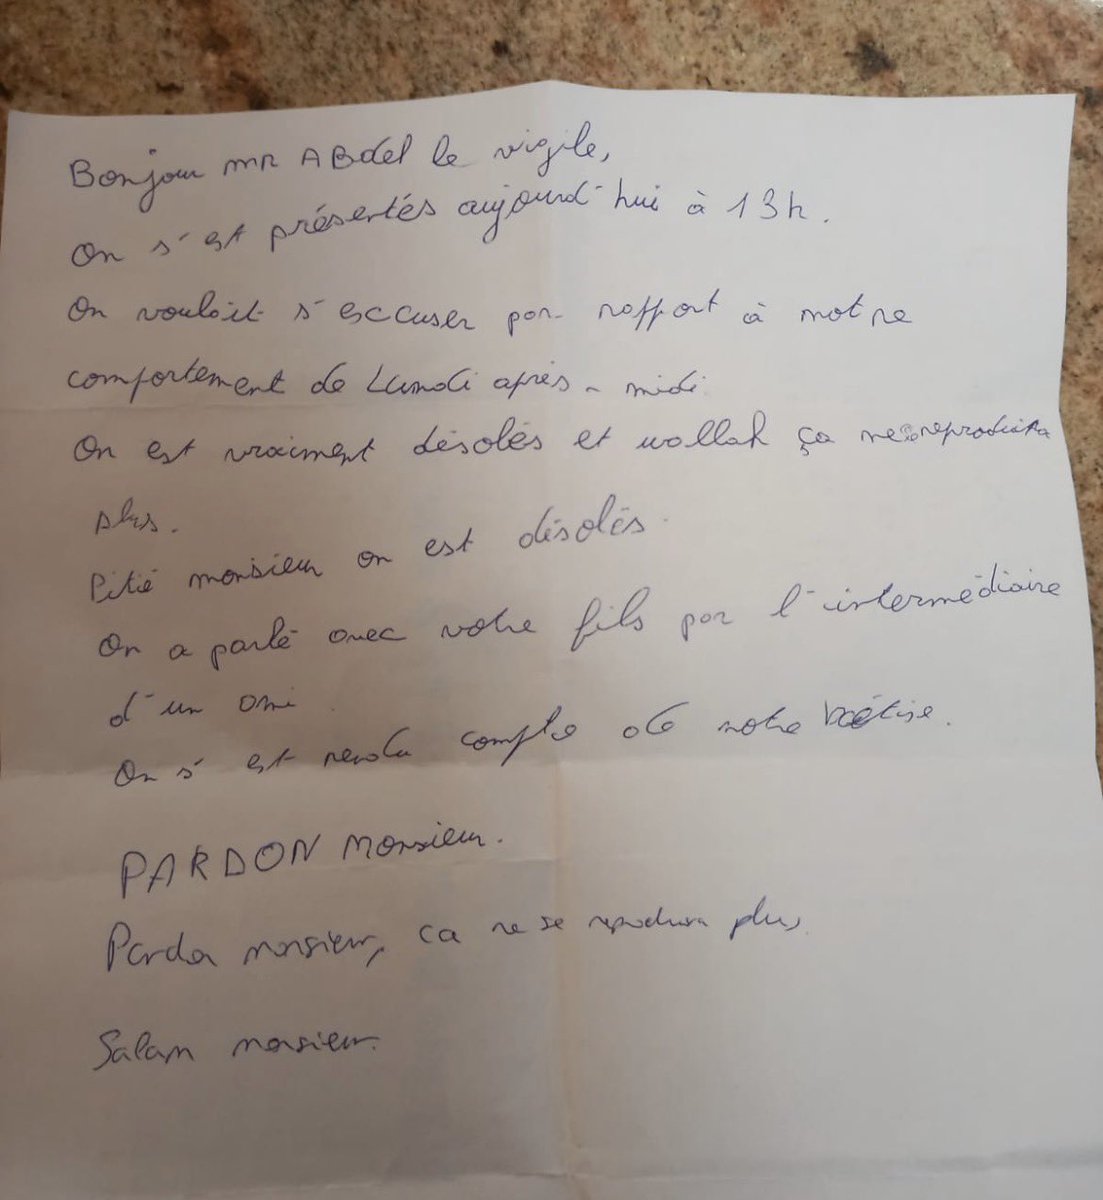 Bonjour mR ABdel le vigile,
On s'est présentés aujourd'hui à 13h.
On voulait s'excuser par rapport à notre
comportement de Lundi après-midi.
On est vraiment désolés et wallah ça ne se reproduira
plus.
Pitié monsieur on est désolés.
On a parlé avec votre fils par l'intermédiaire
d'un ami.
On s'est rendu compte de notre bêtise.
PARDON Monsieur.
Pardon monsieur, ca ne se reproduira plus,
Salam monsieur.